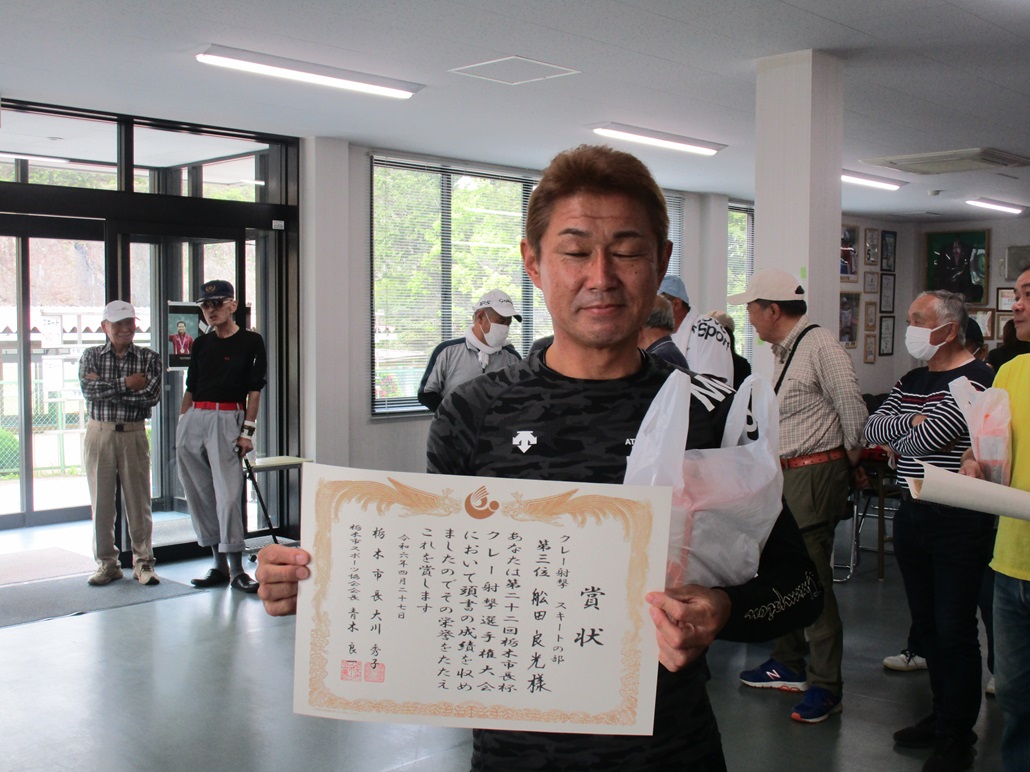 賞状
クレー射撃 スキートの部
第三位 舩田良光様
あなたは第二十二回栃木市長杯
クレー射撃選手権大会
において頭書の成績を収め
ましたのでその栄誉をたたえ
これを賞します
令和六年四月二十七日
栃木市長 大川秀子
栃木市スポーツ協会会長 青木良
Sport